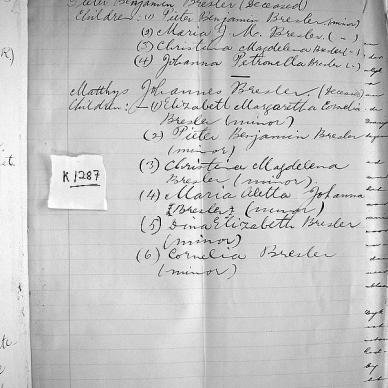 Pieter Benjamin Bresler (Deceased)
Children: (1) Pieter Benjamin Bresler (minor)
(2) Maria J. M. Bresler. ( - )
(3) Christina Magdelena Bresler ( - )
(4) Johanna Petronella Bresler ( - )
Matthys Johannes Bresler (Deceased)
Children:- (1) Elizabeth Margaretha Cornelia
Bresler (minor)
(2) Pieter Benjamin Bresler
(minor)
(3) Christina Magdelena
Bresler (minor)
K 1287
(4) Maria Aletta Johanna
Bresler (minor)
(5) Dina Elizabeth Bresler
(minor)
(6) Cornelia Bresler
(minor)